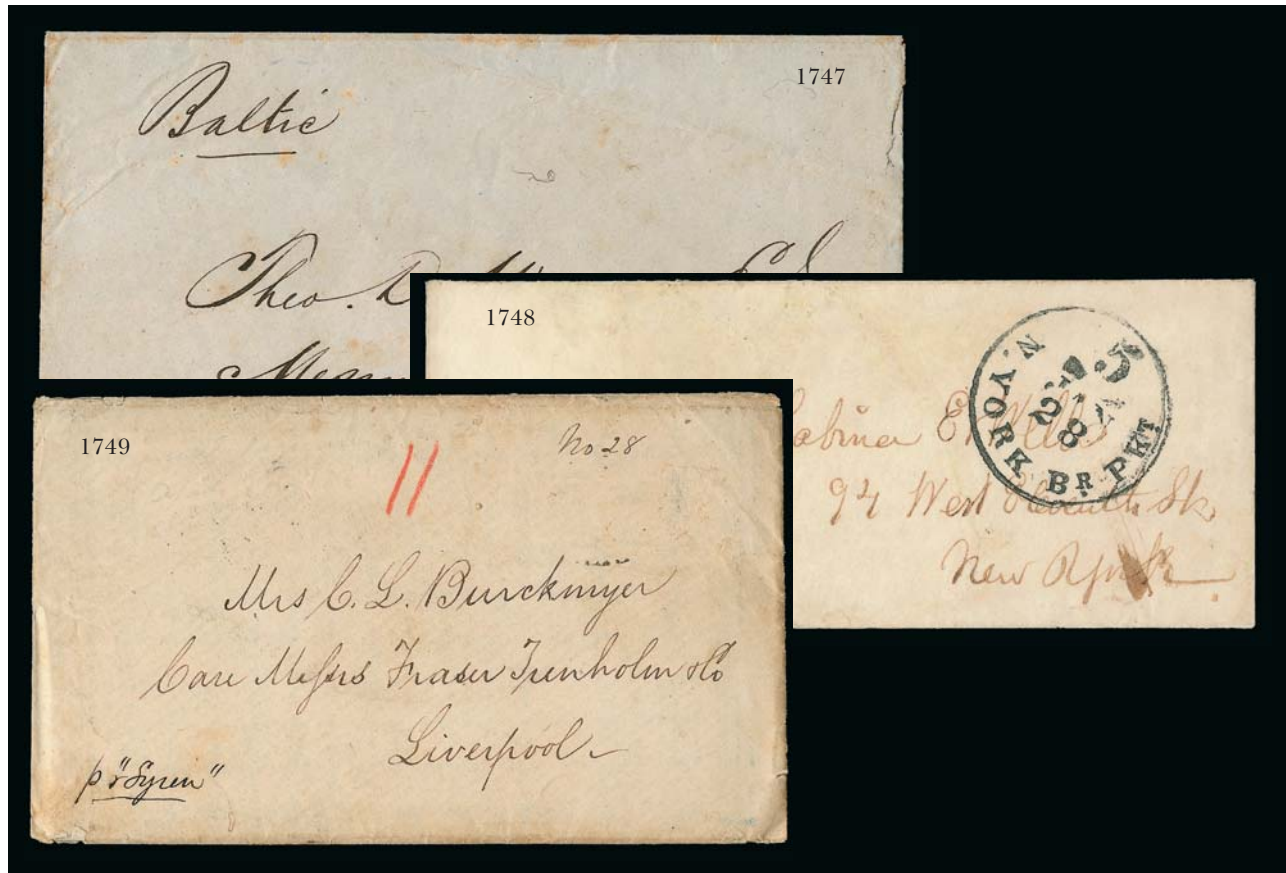 1747
Baltic
Theo.
1748
N. YORK BR PKT
5
94 West Eleventh St.
New York
1749
11
No 28
Mrs C. L. Burckmyer
Care Messrs Fraser Trenholm & Co
Liverpool
pr "Syren"